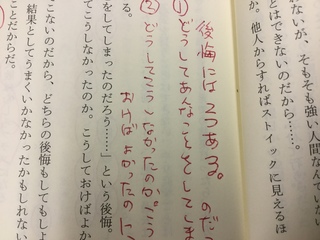 ないが、そもそも強い人間なんていな
とはできないのだから……。
か。他人からすればストイックに見えるほ
後悔には2つある。
のだっ
①どうしてあんなことをしてしま
②どうしてこうしなかったのか。こう
おけばよかったのに
る。
をしてしまったのだろう……」という後悔。
てこうしなかったのか。こうしておけばよか
こないのだから、どちらの後悔もしてもしょ
結果としてうまくいかなかったかもしれない
ことだからだ。